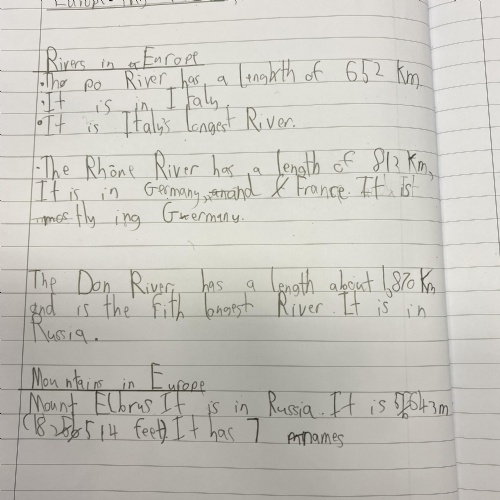 Rivers in Europe
·The po River has a lenghth of 652 Km.
·It is in Italy,
·It is Italy's longest River.
·The Rhône River has a length of 812 Km,
It is in Germany, and France. It is
mostly ing Germany.
The Don River, has a length about 1,870 Km
and is the fith longest River. It is in
Russia.
Mountains in Europe
Mount Elbrus It is in Russia. It is 5,643m
(18 514 feet). It has 7 names